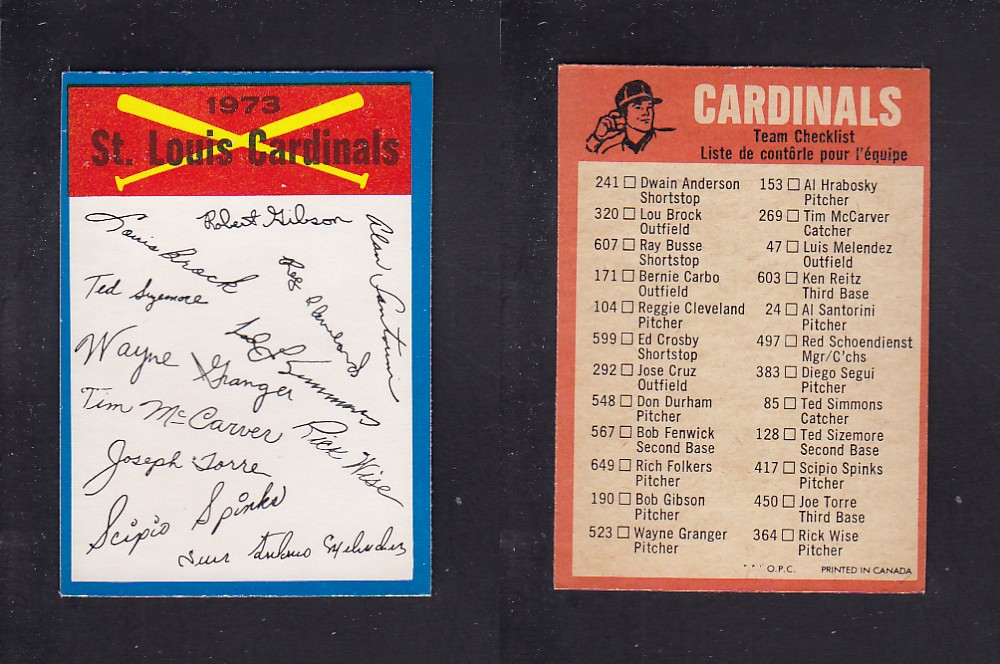 1973
St. Louis Cardinals
Louis Brock
Robert Gibson
Alan Santorini
Ted Sizemore
Reg Cleveland
Wayne Granger
Ted Simmons
Tim McCarver
Rick Wise
Joseph Torre
Scipio Spinks
Luis Antonio Melendez
CARDINALS
Team Checklist
Liste de contôrle pour l'équipe
241 □ Dwain Anderson
Shortstop
320 □ Lou Brock
Outfield
607 □ Ray Busse
Shortstop
171 □ Bernie Carbo
Outfield
104 □ Reggie Cleveland
Pitcher
599 □ Ed Crosby
Shortstop
292 □ Jose Cruz
Outfield
548 □ Don Durham
Pitcher
567 □ Bob Fenwick
Second Base
649 □ Rich Folkers
Pitcher
190 □ Bob Gibson
Pitcher
523 □ Wayne Granger
Pitcher
153 □ Al Hrabosky
Pitcher
269 □ Tim McCarver
Catcher
47 □ Luis Melendez
Outfield
603 □ Ken Reitz
Third Base
24 □ Al Santorini
Pitcher
497 □ Red Schoendienst
Mgr/C'chs
383 □ Diego Segui
Pitcher
85 □ Ted Simmons
Catcher
128 □ Ted Sizemore
Second Base
417 □ Scipio Spinks
Pitcher
450 □ Joe Torre
Third Base
364 □ Rick Wise
Pitcher
** O.P.C. PRINTED IN CANADA